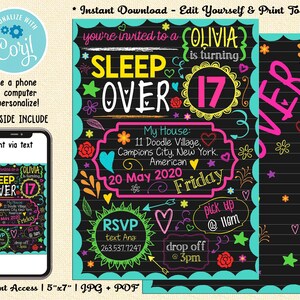 * Instant Download - Edit Yourself & Print To
PERSONALIZE WITH
Corjl
e a phone
computer
personalize!
SIDE INCLUDE
nt via text
you're invited to a
{OLIVIA}
is turning
SLEEP
OVER
17
My House:
11 Doodle Village,
Campions City, New York
American
20 May 2020
Friday
RSVP
text Ana
263.537.7247
pick up
@ 11am
drop off
@ 3pm
nt Access | 5"x7" | JPG + PDF